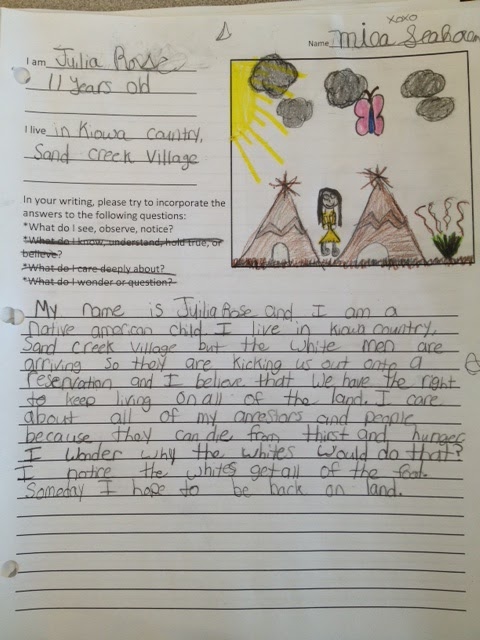 xoxo
Name mica Seahorn
I am Julia Rose
11 Years old
I live in Kiowa country,
Sand creek Village
In your writing, please try to incorporate the
answers to the following questions:
*What do I see, observe, notice?
*What do I know, understand, hold true, or
believe?
*What do I care deeply about?
*What do I wonder or question?
My name is Juilia Rose and I am a
Native american child. I live in kiowa country,
Sand creek Village but the white men are
arriving so they are kicking us out onto a
reservation and I believe that we have the right
to keep living on all of the land. I care
about all of my ancestors and people
because they can die from thirst and hunger
I wonder why the whites would do that?
I notice the whites get all of the food.
Someday I hope to be back on land.